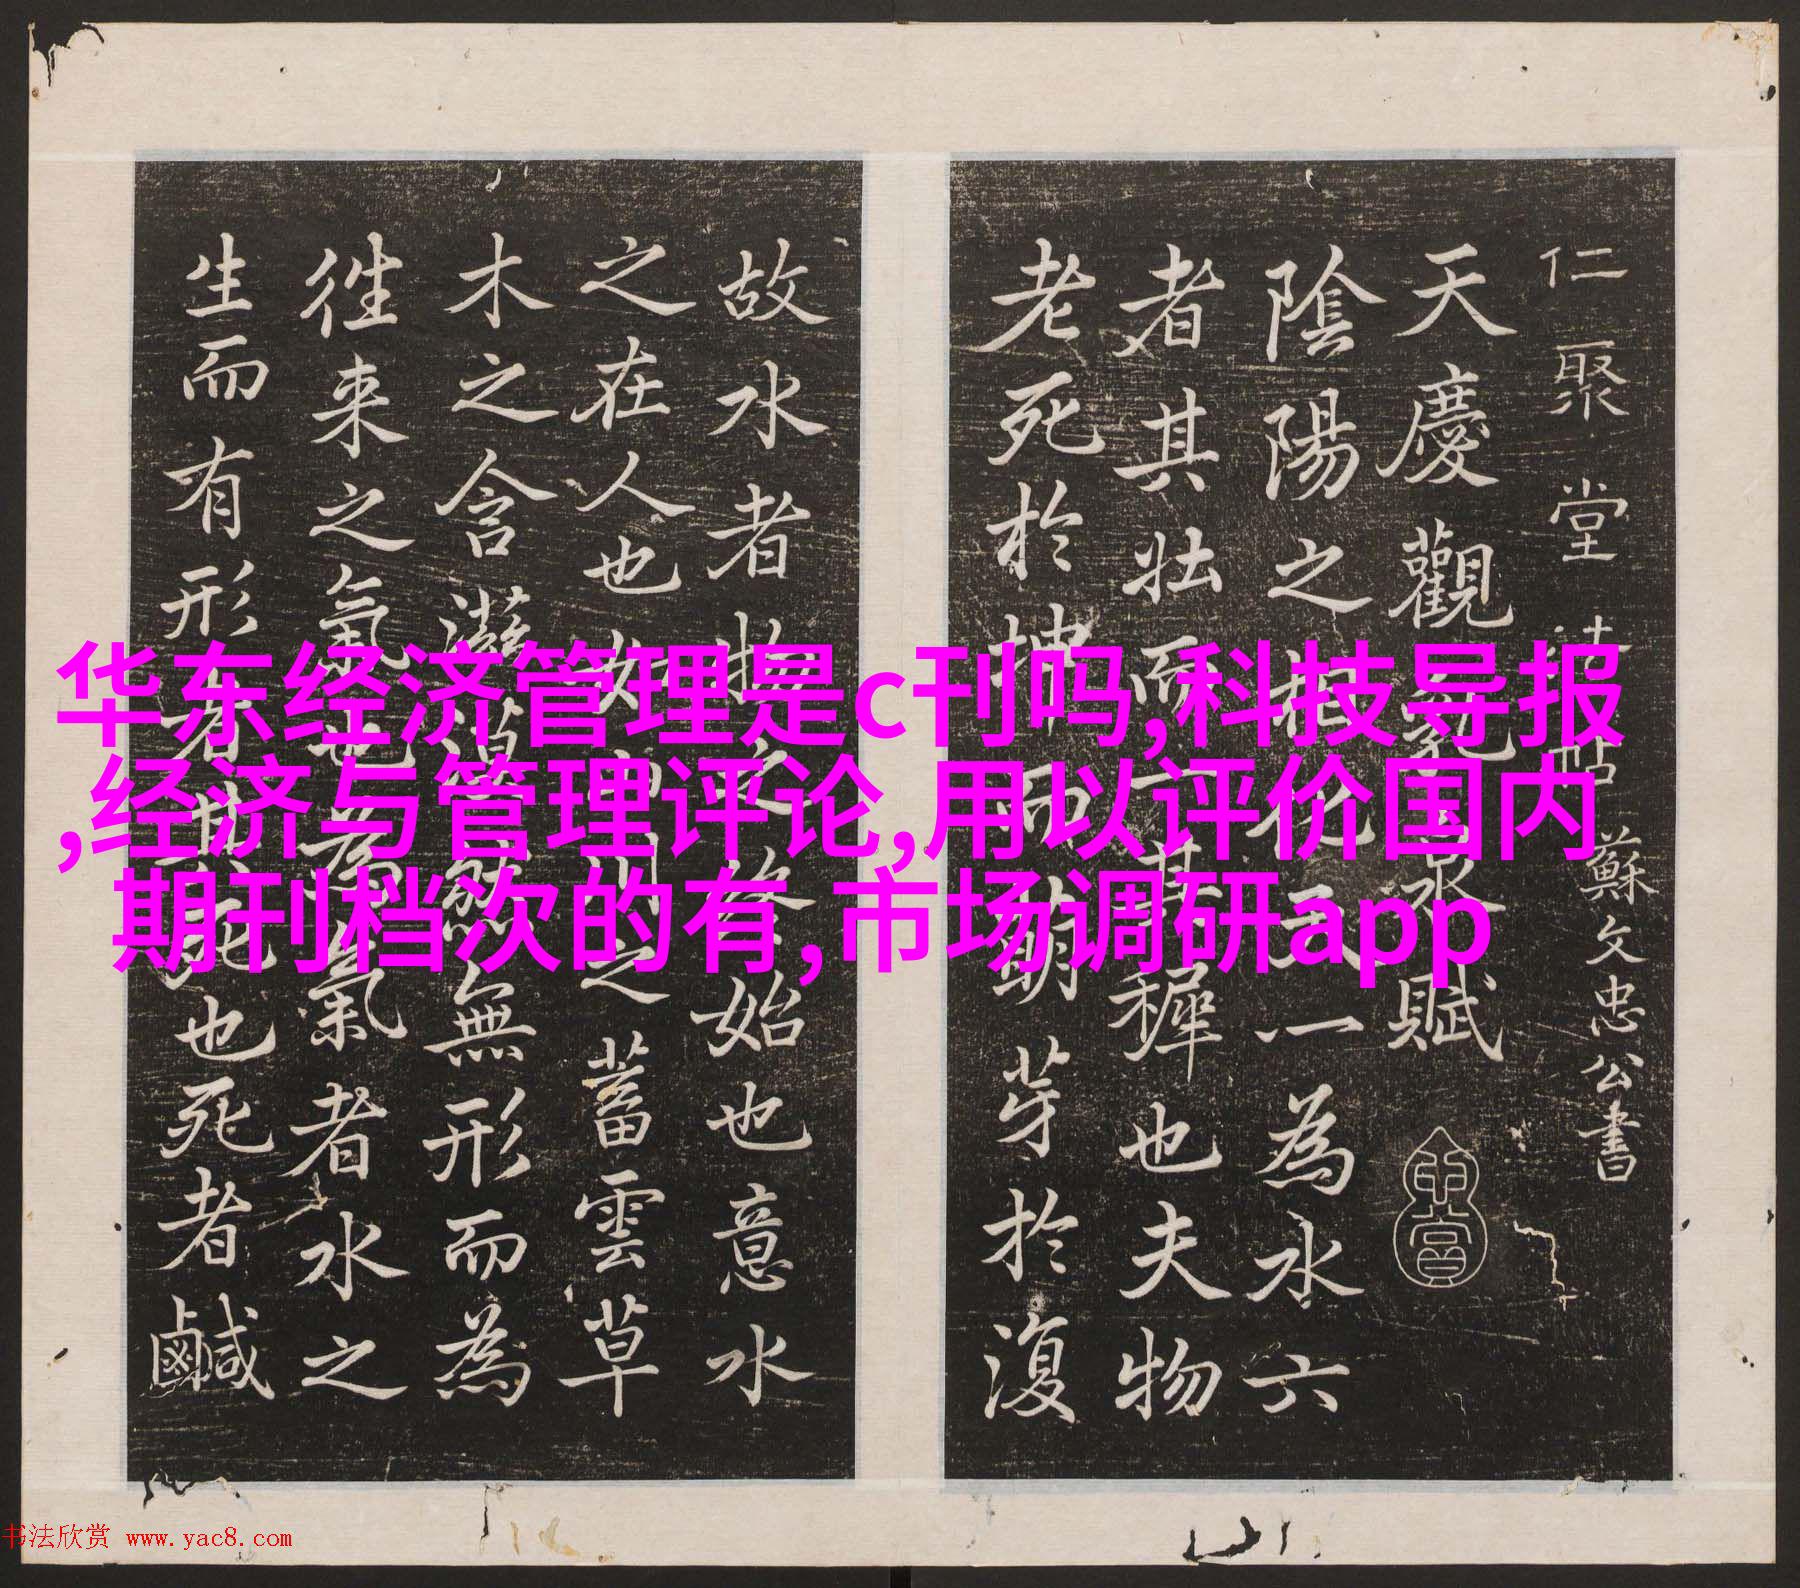 仁聚堂法帖 蘇文忠公書
天慶觀乳泉賦
陰陽之相化天一為水六
者其壯而一者其穉也夫物
老死於坤而萌芽於復
故水者物之終始也意水
之在人也如山川之蓄雲草
木之含滋漠然無形而為
往来之氣也為氣者水之
生而有形者其死也死者鹹
华东经济管理是c刊吗,科技导报
,经济与管理评论,用以评价国内
期刊档次的有,市场调研app
书法欣赏 www.yac8.com